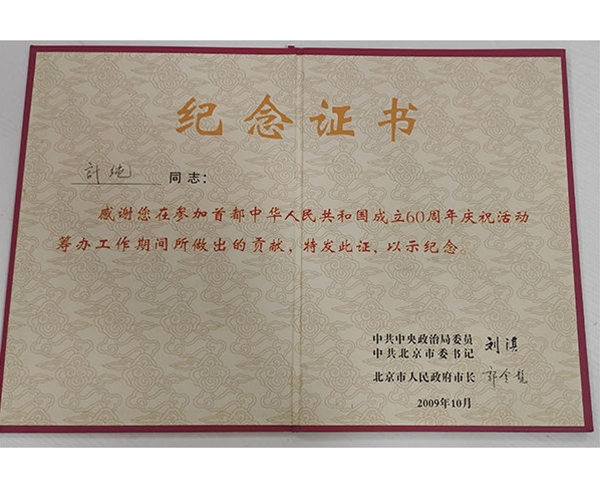 纪念证书
计纯 同志：
感谢您在参加首都中华人民共和国成立60周年庆祝活动
筹办工作期间所做出的贡献，特发此证、以示纪念。
中共中央政治局委员
中共北京市委书记 刘淇
北京市人民政府市长 郭金龙
2009年10月